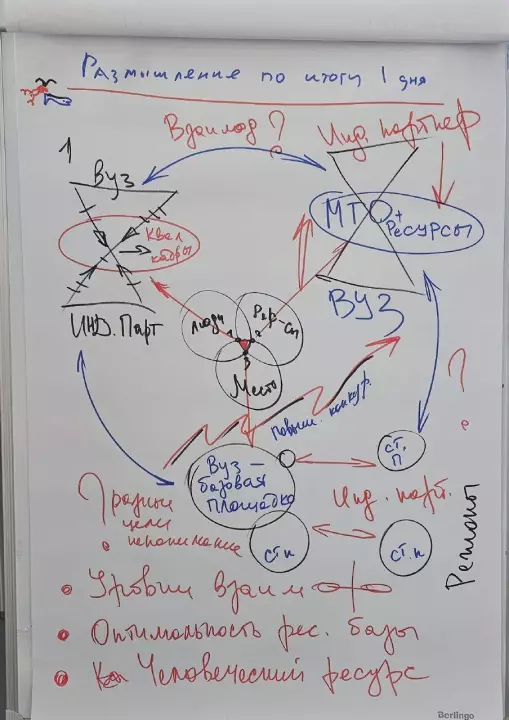 Размышление по итогу 1 дня
Взаимод ?
Инд. партнер
1
Вуз
Квал
кадры
ИНД. Парт
МТО +
РЕСУРСЫ
ВУЗ
Люди
Рер-сы
Место
1
2
3
Повыш. конкур.
?
Вуз –
базовая
площадка
ст.
п
ст.п
ст.п
Инд. парт.
Регионы
? разные
цели
непонимание
• Уровни взаим
• Оптимальность рес. базы
• Человеческий ресурс
Berlingo